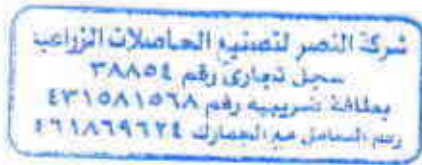 شركة النصر لتصنيع الحاصلات الزراعية
سجل تجارى رقم ٣٨٨٥٤
بطاقة ضريبيه رقم ٤٣١٥٨١٥٦٨
رقم التعامل مع الجمارك ٤٦١٨٦٩٦٢٤